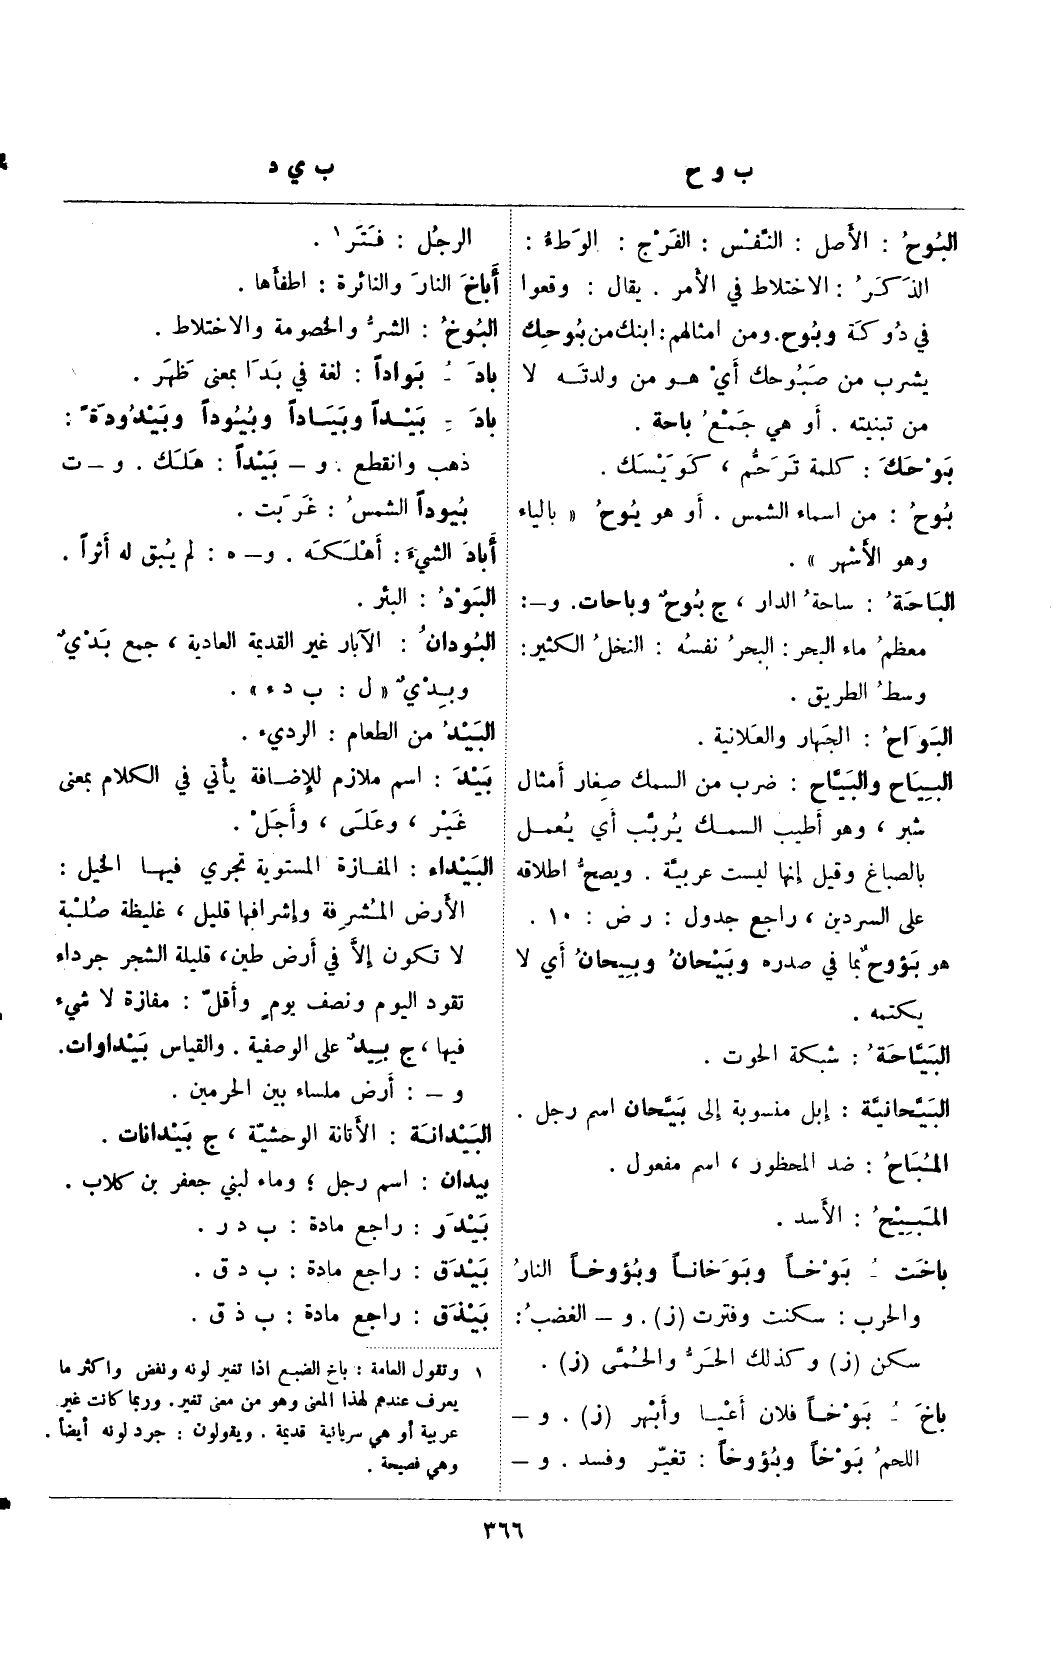 ب و ح
ب ي د
البُوحُ : الأَصل : النَّفْس : الفَرْج : الوَطءُ :
الذَكَرُ : الاختلاط في الأمر . يقال : وقعوا
في دُوكَة وبُوح. ومن امثالهم : ابنك من بُوحِك
يشرب من صَبُوحك أَيْ هو من ولدتَه لا
من تبنيته . أَو هي جَمْعُ باحة .
بَوْحَكَ : كلمة تَرَحُّم ، كَوَيْسَك .
بُوحُ : من اسماء الشمس . أَو هو يُوحُ « بالياء
وهو الأَشهر » .
البَاحَةُ : ساحةُ الدار ، ج بُوحٌ وباحات. و–:
معظمُ ماء البحر : البحرُ نفسهُ : النخلُ الكثير :
وسطُ الطريق .
البَوَاحُ : الجَهار والعَلانية .
البِيَاح والبَيَّاح : ضرب من السمك صِغار أَمثال
شبر ، وهو أَطيب السمك يُربَّب أي يُعمل
بالصباغ وقيل إنها ليست عربيَّة . ويصحُّ اطلاقه
على السردين ، راجع جدول : ر ض : ١٠ .
هو بَؤوحٌ بما في صدره وبَيْحانُ وبِيحانُ أَي لا
يكتمه .
البَيَّاحَةُ : شبكة الحوت .
البَيَّحانيَّة : إبل منسوبة إلى بَيَّحان اسم رجل .
المُبَاحُ : ضد المحظور ، اسم مفعول .
المَبِيْحُ : الأَسد .
باخَت ـُ بَوْخاً وبَوَخاناً وبُؤوخاً النارُ
والحرب : سكنت وفترت (ز) . و – الغضبُ :
سكن (ز) وكذلك الحَرُّ والحُمَّى (ز) .
باخَ ـُ بَوْخاً فلان أَعْيا وأَبْهر (ز) . و –
اللحمُ بَوْخاً وبُؤوخاً : تغيَّر وفسد . و –
الرجُل : فَتَرَ ١ .
أَباخَ النارَ والنائرة : اطفأها .
البُوخُ : الشرُّ والخصومة والاختلاط .
بادَ ـُ بَواداً : لغة في بَدَا بمعنى ظَهَر .
بادَ ـِ بَيْداً وبَيَاداً وبُيُوداً وبَيْدُودَةً :
ذهب وانقطع . و – بَيْداً : هَلَك . و –ت
بُيوداً الشمسُ : غَرَبت .
أَبادَ الشيءَ : أَهْلَكَه . و– ه : لم يُبق له أَثراً .
البَوْدُ : البئر .
البُودانُ : الآبار غير القديمة العادية ، جمع بَدْيٌ
وبِدْيٌ « ل : ب د ء » .
البَيْدُ من الطعام : الرديء .
بَيْدَ : اسم ملازم للإضافة يأتي في الكلام بمعنى
غَيْر ، وعَلَى ، وأَجَلْ .
البَيْداء : المفازة المستوية تجري فيها الخيل :
الأَرض المُشرِفة وإشرافها قليل ، غليظة صُلْبة
لا تكون إلاَّ في أَرض طين، قليلة الشجر جرداء
تقود اليوم ونصف يومٍ وأَقلّ : مفازة لا شيء
فيها ، ج بِيدٌ على الوصفية . والقياس بَيْداوات.
و – : أَرض ملساء بين الحرمين .
البَيْدانَة : الأتانة الوحشيّة ، ج بَيْدانات .
بيدان : اسم رجل ؛ وماء لبني جعفر بن كلاب .
بَيْدَر : راجع مادة : ب د ر .
بَيْدَق : راجع مادة : ب د ق .
بَيْذَق : راجع مادة : ب ذ ق .
١ وتقول العامة : باخ الضبع اذا تغير لونه ونفض واكثر ما
يعرف عندهم لهذا المعنى وهو من معنى تغير. وربما كانت غير
عربية أو هي سريانية قديمة . ويقولون : جرد لونه أيضاً .
وهي فصيحة .
٣٦٦